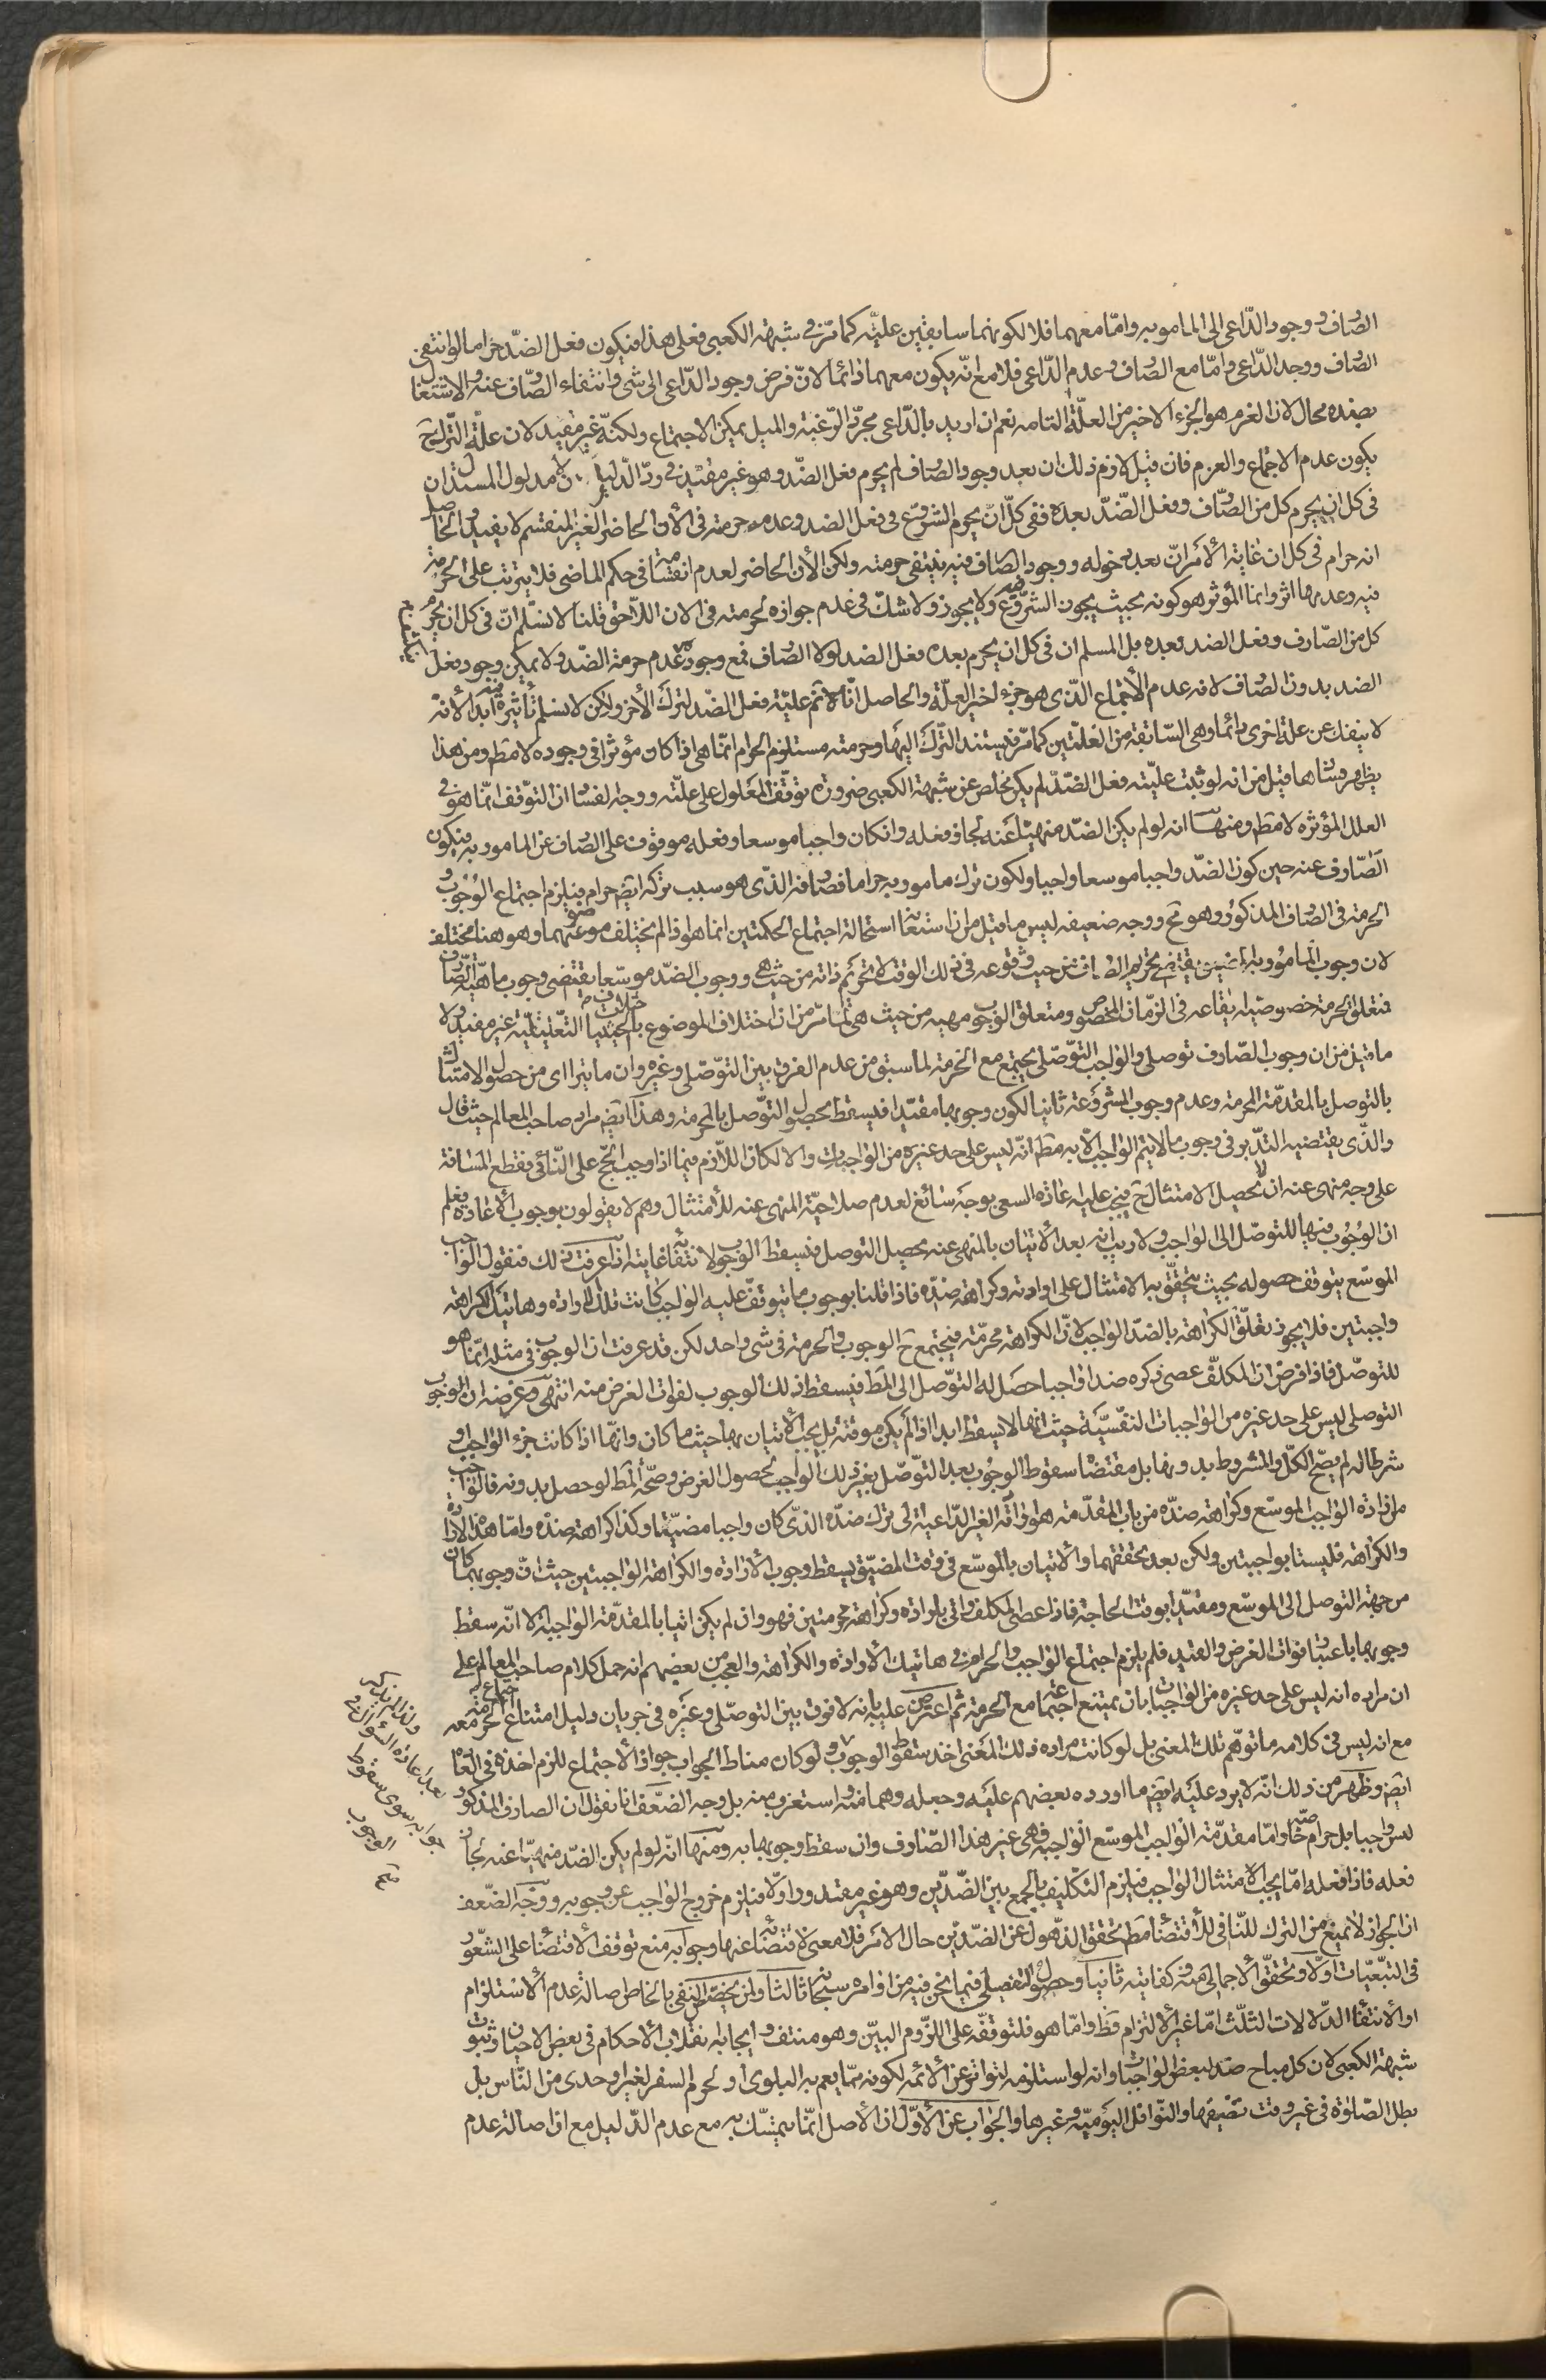 الصارف ووجود الداعى الى المامور به وامّا معهما فلا لكونهما سابقين عليّه كما مرّ فى شبهة الكعبى فعلى هذا فيكون فعل الضدّ حراما لو انتفى
الصارف ووجد الدّاعى وامّا مع الصارف وعدم الدّاعى فلا مع انّه يكون معهما دائما لانّ فرض وجود الدّاعى الى شى وانتفاء الصّارف عنه والاشتغال
بضده محال لان العزم هو الجزء الاخير من العلّة التامه نعم ان اريد بالدّاعى مجرّد الرّغبة والميل يمكن الاجتماع ولكنّه غير مفيد لان علّة التّرك ح
يكون عدم الاجماع والعزم فان قيل لازم ذلك ان بعد وجود الصارف لم يحرم فعل الضدّ وهو غير مفيد فى ردّ الدّليل لان مدلول المستدل ان
فى كل ان يحرم كل من الصّارف وفعل الضّدّ بعده ففى كلّ انّ يحرم الشروع فى فعل الضد وعدم حرمته فى الأن الحاضر الغير المنقسم لا يفيد والحاصل
انه حرام فى كل ان غاية الأمر انّ بعد دخوله ووجود الصارف فيه ينتفى حرمته ولكن الأن الحاضر لعدم انقسامه فى حكم الماضى فلا يترتب على الحرمة
فيه وعدمها اثر وانما المؤثر هو كونه بحيث يجوز الشروع فيه ولا يجوز ولا شكّ فى عدم جوازه لحرمته فى الان اللّاحق قلنا لا نسلّم انّ فى كل ان يحرم
كل من الصّارف وفعل الضد بعده بل المسلم ان فى كل ان يحرم بعده فعل الضد لولا الصارف فمع وجوده عدم حرمة الضّد ولا يمكن وجود فعل
الضد بدون الصارف لانه عدم الأجماع الّذى هو جزء اخير العلّة والحاصل انّا لا ثم عليّة فعل الضّد لترك الأخر ولكن لا نسلم تأثيره فيه ابدا لأنّه
لا ينفك عن علة اخرى دائما وهى السّابقة من العلّتين كما مرّ فيستند التّرك اليها وحرمته مستلزم الحرام انّما هى اذا كان مؤثرا فى وجوده لا مط ومن هذا
يظهر فساد ما قيل من انه لو ثبت عليّة فعل الضّدّ لم يكن مخلص عن شبهة الكعبى ضرورة توقّف المعلول على علّته ووجه الفساد ان التوّقف انّما هو فى
العلل المؤثره لا مط ومنها انه لو لم يكن الضدّ منهيّا عنه لجاز فعله وان كان واجبا موسعا وفعله موقوف على الصارف عن المامور به فيكون
الصّارف عنه حين كون الضّد واجبا موسعا واجبا ولكون ترك مامور به حراما فصارفه الّذى هو سبب تركه ايض حرام فيلزم اجتماع الوجوب و
الحرمة فى الصارف المذكور وهو مح ووجه ضعيفه ليس ما قيل من ان استحالة اجتماع الحكمتين انما هو اذا لم يختلف موضوعهما وهو ههنا مختلف
لان وجوب المامور به المضيق يقتضى تحريم الصارف من حيث وقوعه فى ذلك الوقت لا تحريم ذاته من حيث هى ووجوب الضدّ موسّعا يقتضى وجوب ماهيّة الصّارف
فتعلق الحرمة خصوصيّة ايقاعه فى الزّمان المخصوص ومتعلق الوجوب مهيه من حيث هى لما مرّ من ان اختلاف الموضوع باختلاف الحيثيات التّعليليّة غير مفيد ولا
ما قيل من ان وجوب الصّارف توصلى والواجب التوّصّلى يجتمع مع الحرمة لما سبق من عدم الفرق بين التوّصّلى وغيره وان ما يترااى من حصول الامتثال
بالتوصل بالمقدمّة المحرمة وعدم وجوب المشروعة ثانيا لكون وجوبها مقيّدا فيسقط بحصول التوّصل بالمحرمة وهذا ايض مراد صاحب المعالم حيث قال
والّذى يقتضيه التدّبر فى وجوب ما لا يتم الواجب الّا به مط انّه ليس على حد غيره من الواجبات والا لكان اللّازم فيما اذا وجب الحجّ على النّائى فقطع المسافة
على وجه منهى عنه ان لا يحصل الامتثال ح فيجب عليه اعادة السعى بوجه سائغ لعدم صلاحيّة المنهى عنه للأمتثال وهم لا يقولون بوجوب الأعادة فعلم
ان الوجوب فيها للتوصّل الى الواجب ولا ريب انه بعد الأتيان بالمنهى عنه يحصل التوصل فيسقط الوجوب لانتفاء غايته اذا عرفت ذلك فنقول الواجب
الموسّع يتوقف حصوله بحيث يتحقّق به الامتثال على ارادته وكراهة ضدّه فاذا قلنا بوجوب ما يتوقفّ عليه الواجب كانت تلك الارادة وهاتيك الكراهة
واجبتين فلا يجوز تعلّق الكراهة بالضدّ الواجب لانّ الكراهة محرّمة فيجتمع ح الوجوب والحرمة فى شى واحد لكن قد عرفت ان الوجوب فى مثله انّما هو
للتوصّل فاذا فرض ان المكلّف عصى وكره ضدا واجبا حصل له التوّصل الى المط فيسقط ذلك الوجوب لفوات الغرض منه انتهى وغرضه ان الوجوب
التوصلى ليس على حد غيره من الواجبات النفسيّة حيث انها لا يسقط ابدا اذا لم يكن موقتة بل يجب الأتيان بها حيث ما كان وانّما اذا كانت جزء الواجب او
شرطا له لم يصّح الكلّ والمشروط بدونها بل مقتضاه سقوط الوجوب بعد التوّصّل بغير ذلك الواجب لحصول الغرض وصحّة المط لو حصل بدونه فالواجب
من ارادة الواجب الموسّع وكراهة ضدّه من باب المقدّمة هو ارادته الغير الدّاعية الى ترك ضدّه الذّى كان واجبا مضيّقا وكذا كراهة ضدّه وامّا هذه الارادة
والكراهة فليستا بواجبتين ولكن بعد تحققهما والاتيان بالموسّع فى وقت المضيّق يسقط وجوب الأرادة والكراهة الواجبتين حيث انّ وجوبهما كان
من جهة التوصل الى الموسّع ومقيّدا بوقت الحاجة فاذا عصى المكلف واتى بارادة وكراهة محرمتين فهو وان لم يكن اتيا بالمقدمّة الواجبة الا انّه سقط
وجوبها باعتبار فوات الغرض والقيد فلم يلزم اجتماع الواجب والحرام فى هاتيك الأرادة والكراهة والعجب من بعضهم انه حمل كلام صاحب المعالم على
ان مراده انه ليس على حد غيره من الواجبات بان يمتنع اجتماعه مع الحرمة ثم اعترض عليه بانه لا فرق بين التوصّلى وغيره فى جريان دليل امتناع اجتماع الحرمة معه
مع انه ليس فى كلامه ما توهّم تلك المعنى بل لو كانت مراده ذلك المعنى اخذ سقوط الوجوب ولو كان مناط الجواب جواز الأجتماع للزم اخذه فى القا
ايض وظهر من ذلك انّه لا يرد عليه ايضا ما اورده بعضهم عليه وجعله وهما منه واستغرب منه بل وجه الضعف انا نقول ان الصارف المذكور
ليس واجبا بل حرام صح وامّا مقدّمة الواجب الموسّع الواجبة فهى غير هذا الصّارف وان سقط وجوبها به ومنها انّه لو لم يكن الضدّ منهيّا عنه لجاز
فعله فاذا فعله امّا يجب الامتثال الواجب فيلزم التكليف بالجمع بين الضّدّين وهو غير مقدور او لا فيلزم خروج الواجب عن وجوبه ووجه الضّعف
ان الجواز لا يمنع من الترك للنّافى للأقتضاء مط تحقق الذّهول عن الضدّين حال الامر فلا معنى لاقتضائه عنها وجوابه منع توقف الأقتضاء على الشعور
فى التبّعيّات اوّلا وتحقّق الأجمالى منه وكفايته ثانيا وحصول التفصيلى فيما نحن فيه من اوامره سبحانه ثالثا ولمن يخصّص النفى بالخاص اصالة عدم الأستلزام
او الأنتفاء الدّلالات الثلّث امّا غير الألتزام فظ وامّا هو فلتوقّفه على اللزّوم البيّن وهو منتف وايجابه نقلاب الأحكام فى بعض الاحيان وثبوت
شبهة الكعبى لان كل مباح ضد لبعض الواجبات وانه لو استلزمه لتواتر عن الأئمه لكونه ممّا يعم به البلوى او لحرم السفر لغير اوحدى من النّاس بل
بطل الصّلوة فى غير وقت تضيقها والنّوافل اليوميّه وغيرها والجواب عن الأوّل ان الأصل انّما يتمسّك به مع عدم الدّليل مع ان اصالة عدم
ولذا لم يذكر
بعد اعادة السؤال فى
جوابه سوى سقوط
الوجوب